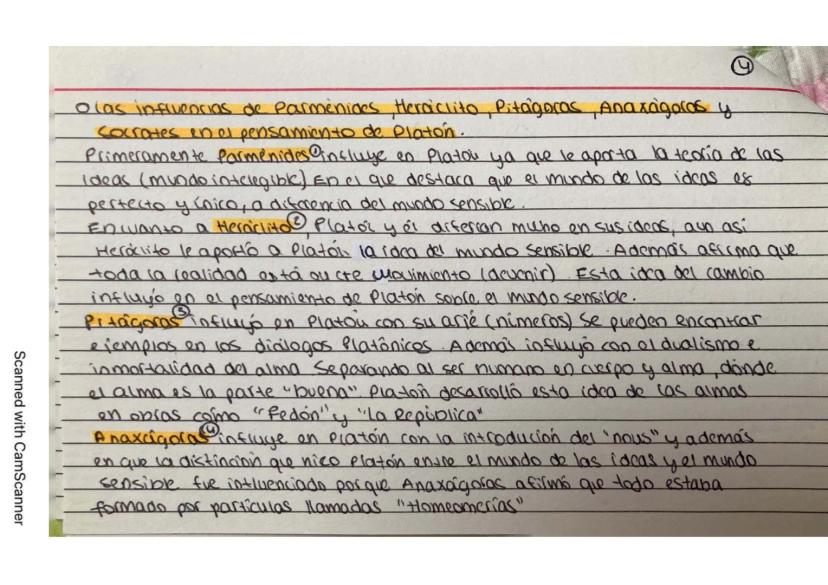 4
O las influencias de Parménides, Heráclito, Pitágoras, Anaxágoras y
Sócrates en el pensamiento de Platón.
Primeramente Parménides ① influye en Platón ya que le aporta la teoría de las
ideas (mundo intelegible) En el que destaca que el mundo de las ideas es
perfecto y único, a diferencia del mundo sensible.
En cuanto a Heráclito ②, Platón y él diferían mucho en sus ideas, aun así
Heráclito le aportó a Platón la idea del mundo sensible. Además afirma que
toda la realidad está en movimiento (devenir) Esta idea del cambio
influyó en el pensamiento de Platón sobre el mundo sensible.
Pitágoras ③ influyó en Platón con su arjé (números) Se pueden encontrar
ejemplos en los diálogos Platónicos. Además influyó con el dualismo e
inmortalidad del alma Separando al ser humano en cuerpo y alma, donde
el alma es la parte "buena" Platón desarolló esta idea de las almas
en obras como "Fedón" y "la República"
Anaxágoras ④ influye en Platón con la introdución del "nous" y además
en que la distinción que hizo Platón entre el mundo de las ideas y el mundo
sensible fue influenciado porque Anaxágoras afirmó que todo estaba
formado por partículas llamadas "Homeomerías"
Scanned with CamScanner